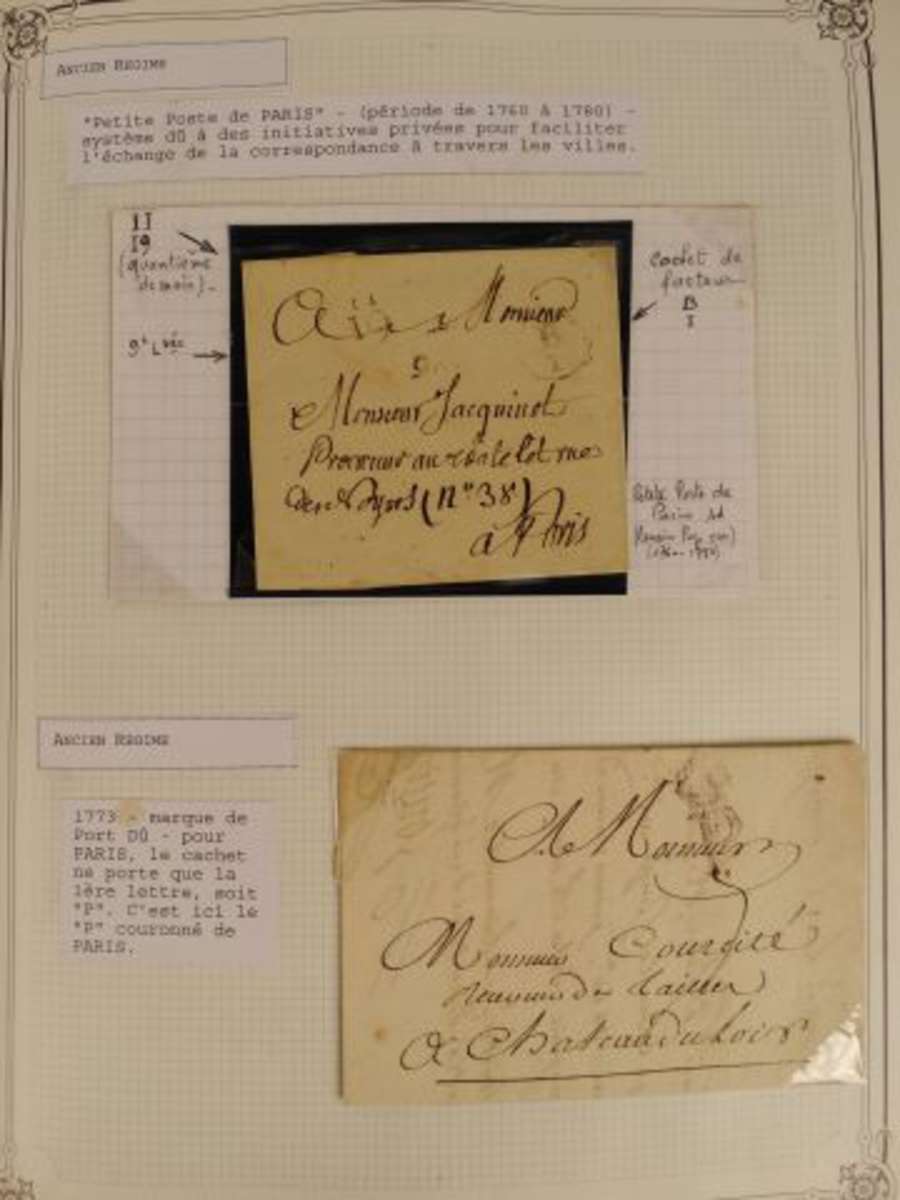 ANCIEN REGIME
"Petite Poste de PARIS" - (période de 1760 à 1780) -
système dû à des initiatives privées pour faciliter
l'échange de la correspondance à travers les villes.
II
19
(quantième
de mois)_
9è Lvée
cachet de
facteur
B
I
A Monsieur
Monsieur Jacquinot
Procureur au
(n° 38)
à Paris
Petite Poste de
Paris
ANCIEN REGIME
1773 - marque de
Port DÛ - pour
PARIS, le cachet
ne porte que la
1ère lettre, soit
"P". C'est ici le
"P" couronné de
PARIS.
A Monsieur
Monsieur Courcité
receveur de tailles
A Chateau du Loir